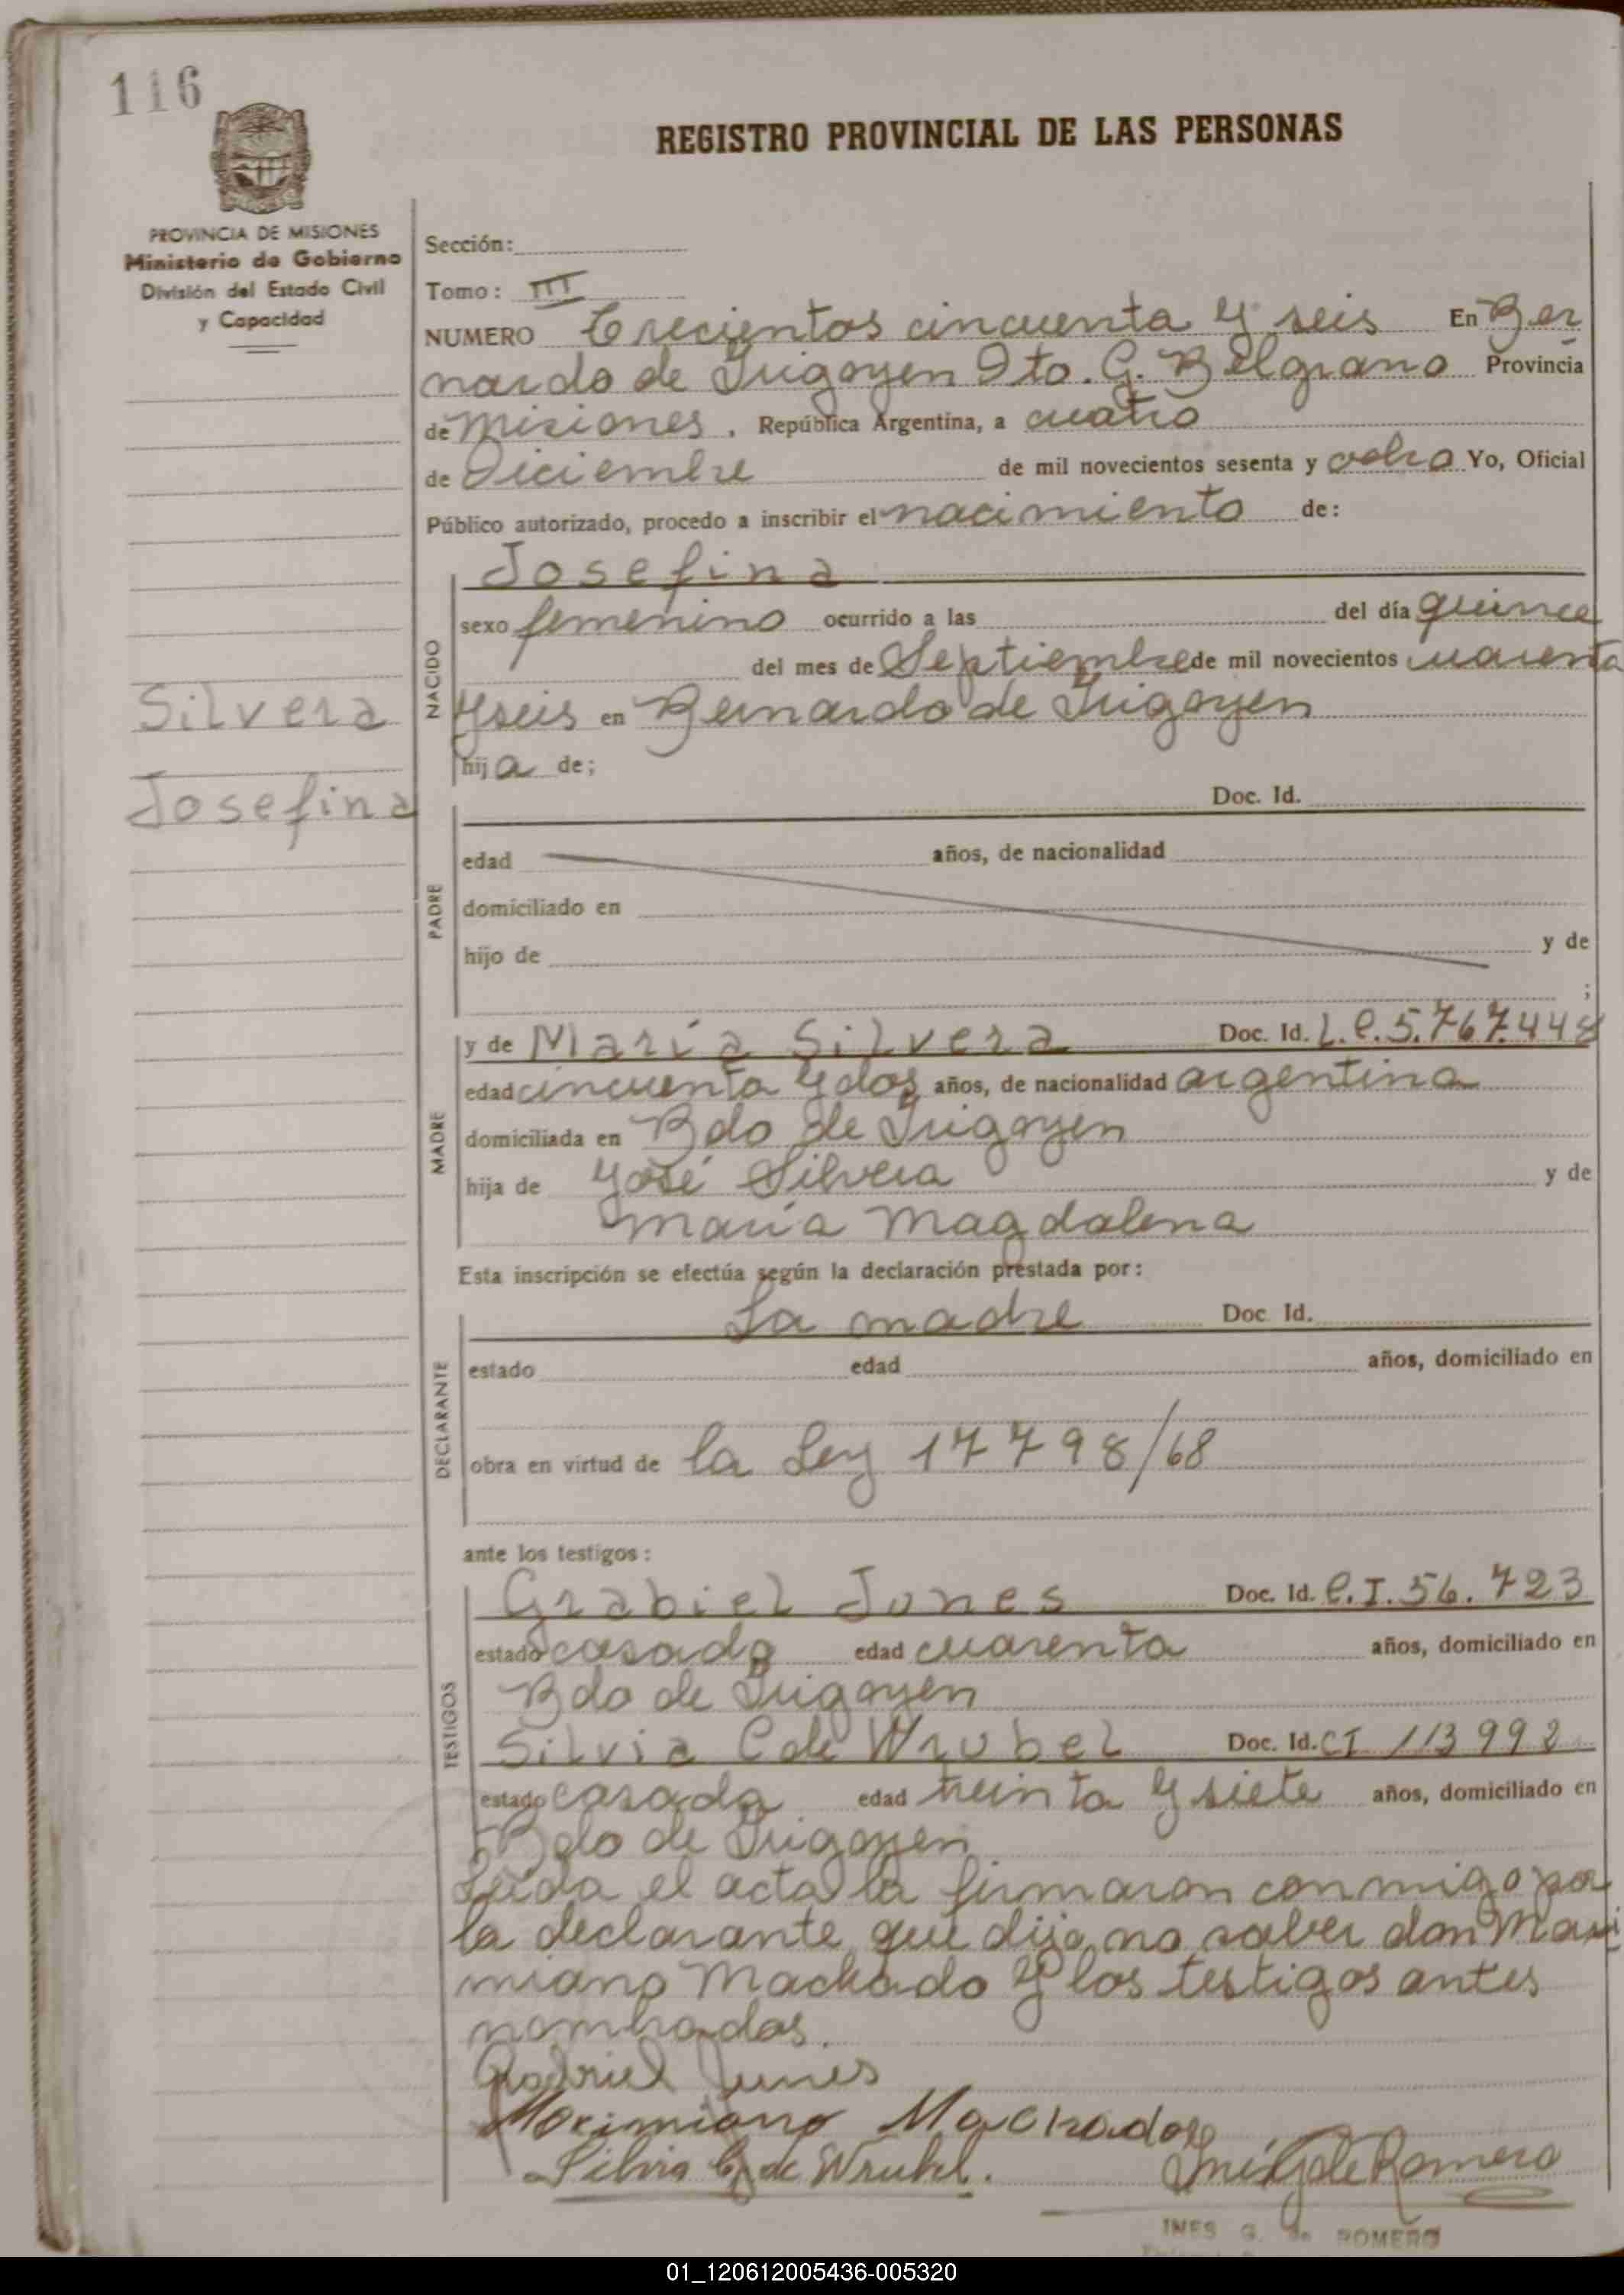 116
REGISTRO PROVINCIAL DE LAS PERSONAS
PROVINCIA DE MISIONES
Ministerio de Gobierno
División del Estado Civil
y Capacidad
Sección:
Tomo: III
NUMERO Trecientos cincuenta y seis En Ber
nardo de Irigoyen Dto. G. Belgrano Provincia
de Misiones. República Argentina, a cuatro
de Diciembre de mil novecientos sesenta y ocho Yo, Oficial
Público autorizado, procedo a inscribir el nacimiento de:
Silvera
Josefina
NACIDO
Josefina
sexo femenino ocurrido a las del día quince
del mes de Septiembre de mil novecientos cuarenta
y seis en Bernardo de Irigoyen
hija de;
PADRE
Doc. Id.
edad años, de nacionalidad
domiciliado en
hijo de y de
;
MADRE
y de María Silvera Doc. Id. L.C.5.767.448
edad cincuenta y dos años, de nacionalidad argentina
domiciliada en Bdo de Irigoyen
hija de José Silvera y de
María Magdalena
Esta inscripción se efectúa según la declaración prestada por:
DECLARANTE
La madre Doc Id.
estado edad años, domiciliado en
obra en virtud de la Ley 17798/68
ante los testigos:
TESTIGOS
Grabiel Junes Doc. Id. C.I.56.723
estado casado edad cuarenta años, domiciliado en
Bdo de Irigoyen
Silvia C de Wrubel Doc. Id. CI 113992
estado casada edad treinta y siete años, domiciliado en
Bdo de Irigoyen
Leida el acta la firmaron conmigo por
la declarante que dijo no saber don Maxi
miano Machado y los testigos antes
nombrados.
Gabriel Junes
Maximiano Machado
Silvia C. de Wrubel. Inés G de Romero
INES G. de ROMERO
01_120612005436-005320